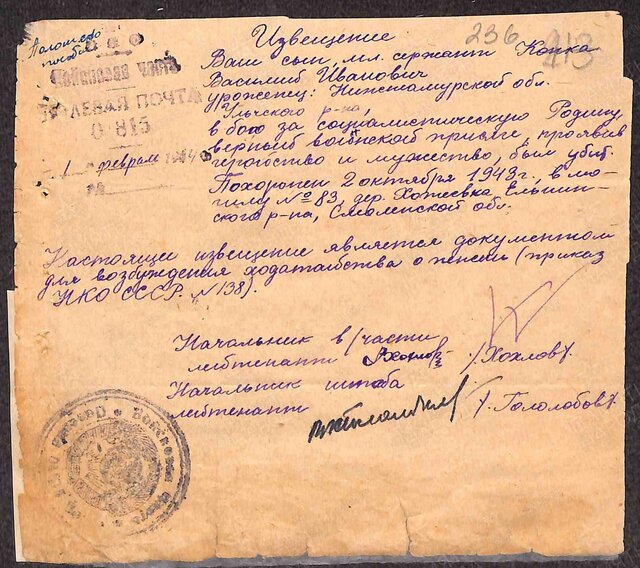 Извещение
236
Ваш сын, мл. сержант Копка
Василий Иванович
уроженец: Нижнеамурской обл.
Ульчского р-на,
в бою за социалистическую Родину,
верный воинской присяге, проявив
геройство и мужество, был убит.
Похоронен 2 октября 1943 г. в мо-
гилу № 83, дер. Хотеевка Ельнин-
ского р-на, Смоленской обл.
ПОЛЕВАЯ ПОЧТА
0815
1 февраля 194
№
Настоящее извещение является документом
для возбуждения ходатайства о пенсии (приказ
НКО СССР № 138).
Начальник в/части
лейтенант /Хохлов/.
Начальник штаба
лейтенант /. Гололобов/.